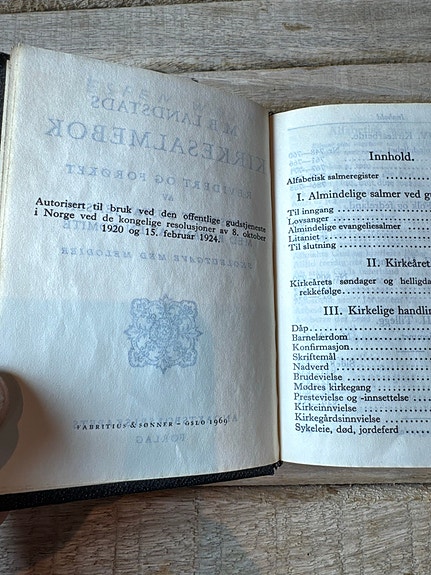 Autorisert til bruk ved den offentlige gudstjeneste
i Norge ved de kongelige resolusjoner av 8. oktober
1920 og 15. februar 1924.
FABRITIUS & SØNNER – OSLO 1969
M. B. LANDSTADS
KIRKESALMEBOK
REVIDERT OG FORØKET
AV
SKOLEUTGAVE MED MELODIER
FORLAG
Innhold.
Alfabetisk salmeregister
I. Almindelige salmer ved g
Til inngang
Lovsanger
Almindelige evangeliesalmer
Litaniet
Til slutning
II. Kirkeåret
Kirkeårets søndager og helligda
rekkefølge
III. Kirkelige handlin
Dåp
Barnelærdom
Konfirmasjon
Skriftemål
Nadverd
Brudevielse
Mødres kirkegang
Prestevielse og -innsettelse
Kirkeinnvielse
Kirkegårdsinnvielse
Sykeleie, død, jordeferd